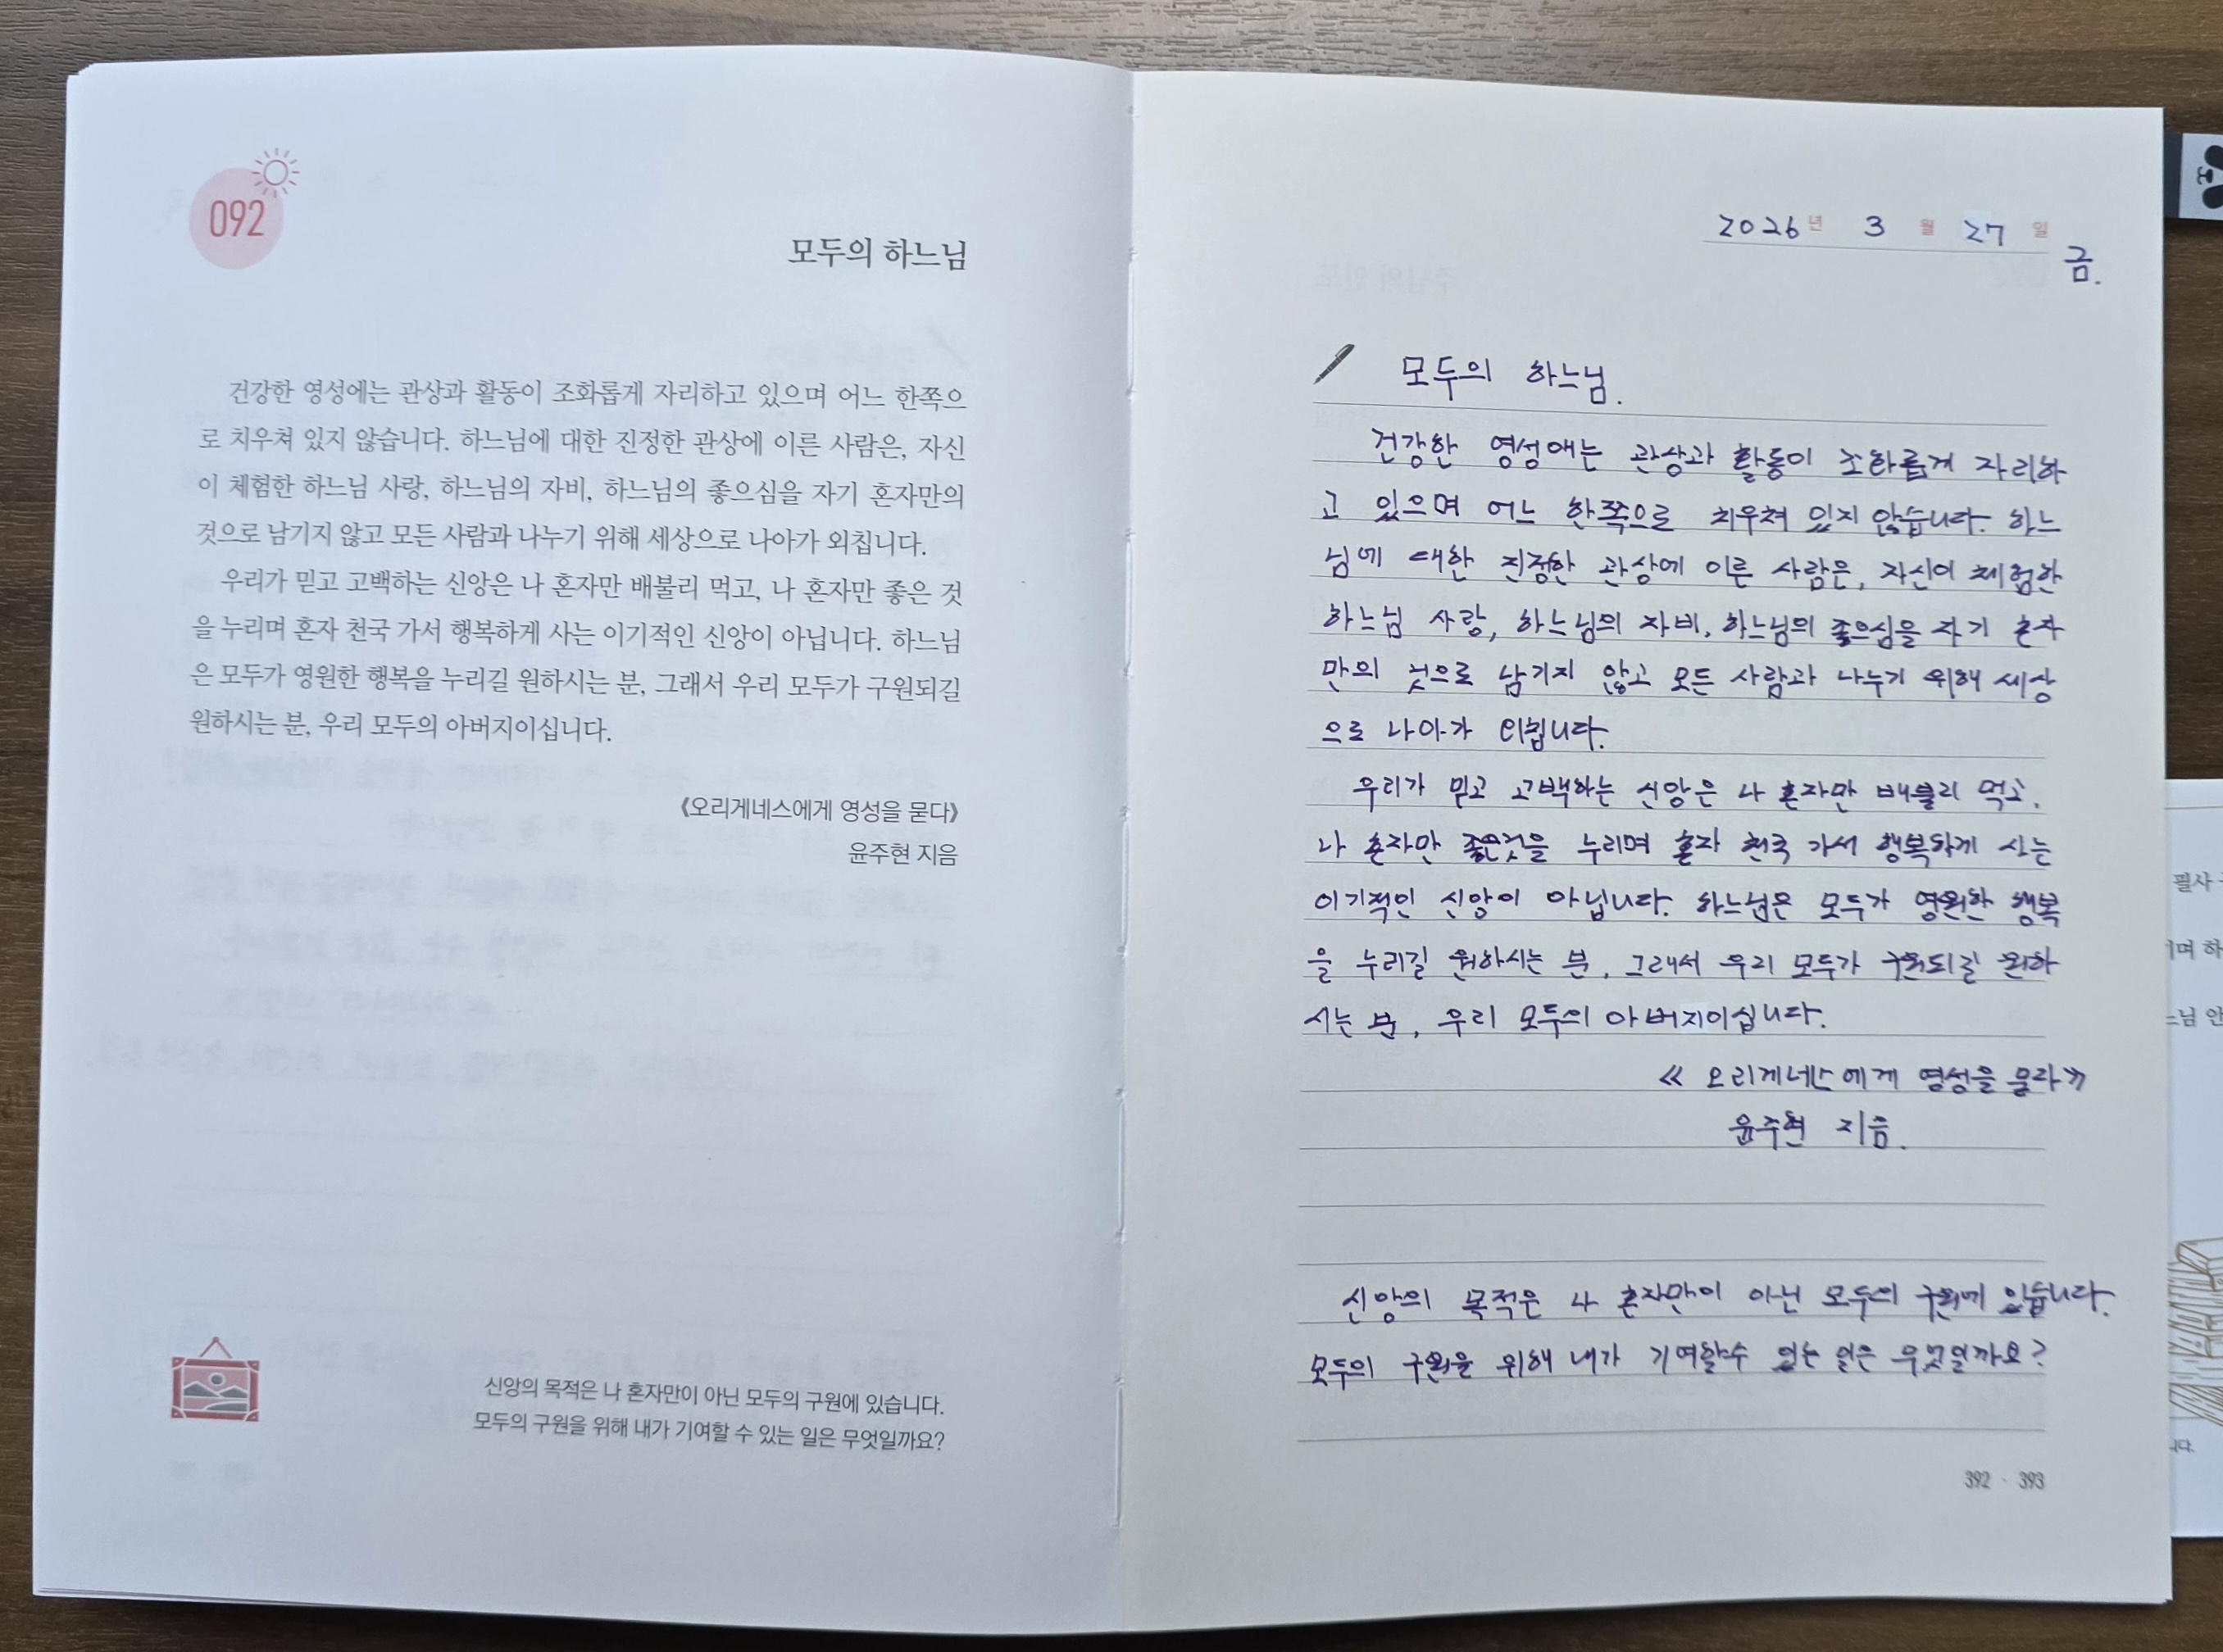 092
모두의 하느님
건강한 영성에는 관상과 활동이 조화롭게 자리하고 있으며 어느 한쪽으
로 치우쳐 있지 않습니다. 하느님에 대한 진정한 관상에 이른 사람은, 자신
이 체험한 하느님 사랑, 하느님의 자비, 하느님의 좋으심을 자기 혼자만의
것으로 남기지 않고 모든 사람과 나누기 위해 세상으로 나아가 외칩니다.
우리가 믿고 고백하는 신앙은 나 혼자만 배불리 먹고, 나 혼자만 좋은 것
을 누리며 혼자 천국 가서 행복하게 사는 이기적인 신앙이 아닙니다. 하느님
은 모두가 영원한 행복을 누리길 원하시는 분, 그래서 우리 모두가 구원되길
원하시는 분, 우리 모두의 아버지이십니다.
《오리게네스에게 영성을 묻다》
윤주현 지음
신앙의 목적은 나 혼자만이 아닌 모두의 구원에 있습니다.
모두의 구원을 위해 내가 기여할 수 있는 일은 무엇일까요?
2026년 3월 27일
금.
모두의 하느님.
건강한 영성에는 관상과 활동이 조화롭게 자리하
고 있으며 어느 한쪽으로 치우쳐 있지 않습니다. 하느
님에 대한 진정한 관상에 이른 사람은, 자신이 체험한
하느님 사랑, 하느님의 자비, 하느님의 좋으심을 자기 혼자
만의 것으로 남기지 않고 모든 사람과 나누기 위해 세상
으로 나아가 외칩니다.
우리가 믿고 고백하는 신앙은 나 혼자만 배불리 먹고,
나 혼자만 좋은것을 누리며 혼자 천국 가서 행복하게 사는
이기적인 신앙이 아닙니다. 하느님은 모두가 영원한 행복
을 누리길 원하시는 분, 그래서 우리 모두가 구원되길 원하
시는 분, 우리 모두의 아버지이십니다.
《 오리게네스에게 영성을 묻다》
윤주현 지음.
신앙의 목적은 나 혼자만이 아닌 모두의 구원에 있습니다.
모두의 구원을 위해 내가 기여할수 있는 일은 무엇일까요?
392 · 393
필사
며 하
님 안
니다.